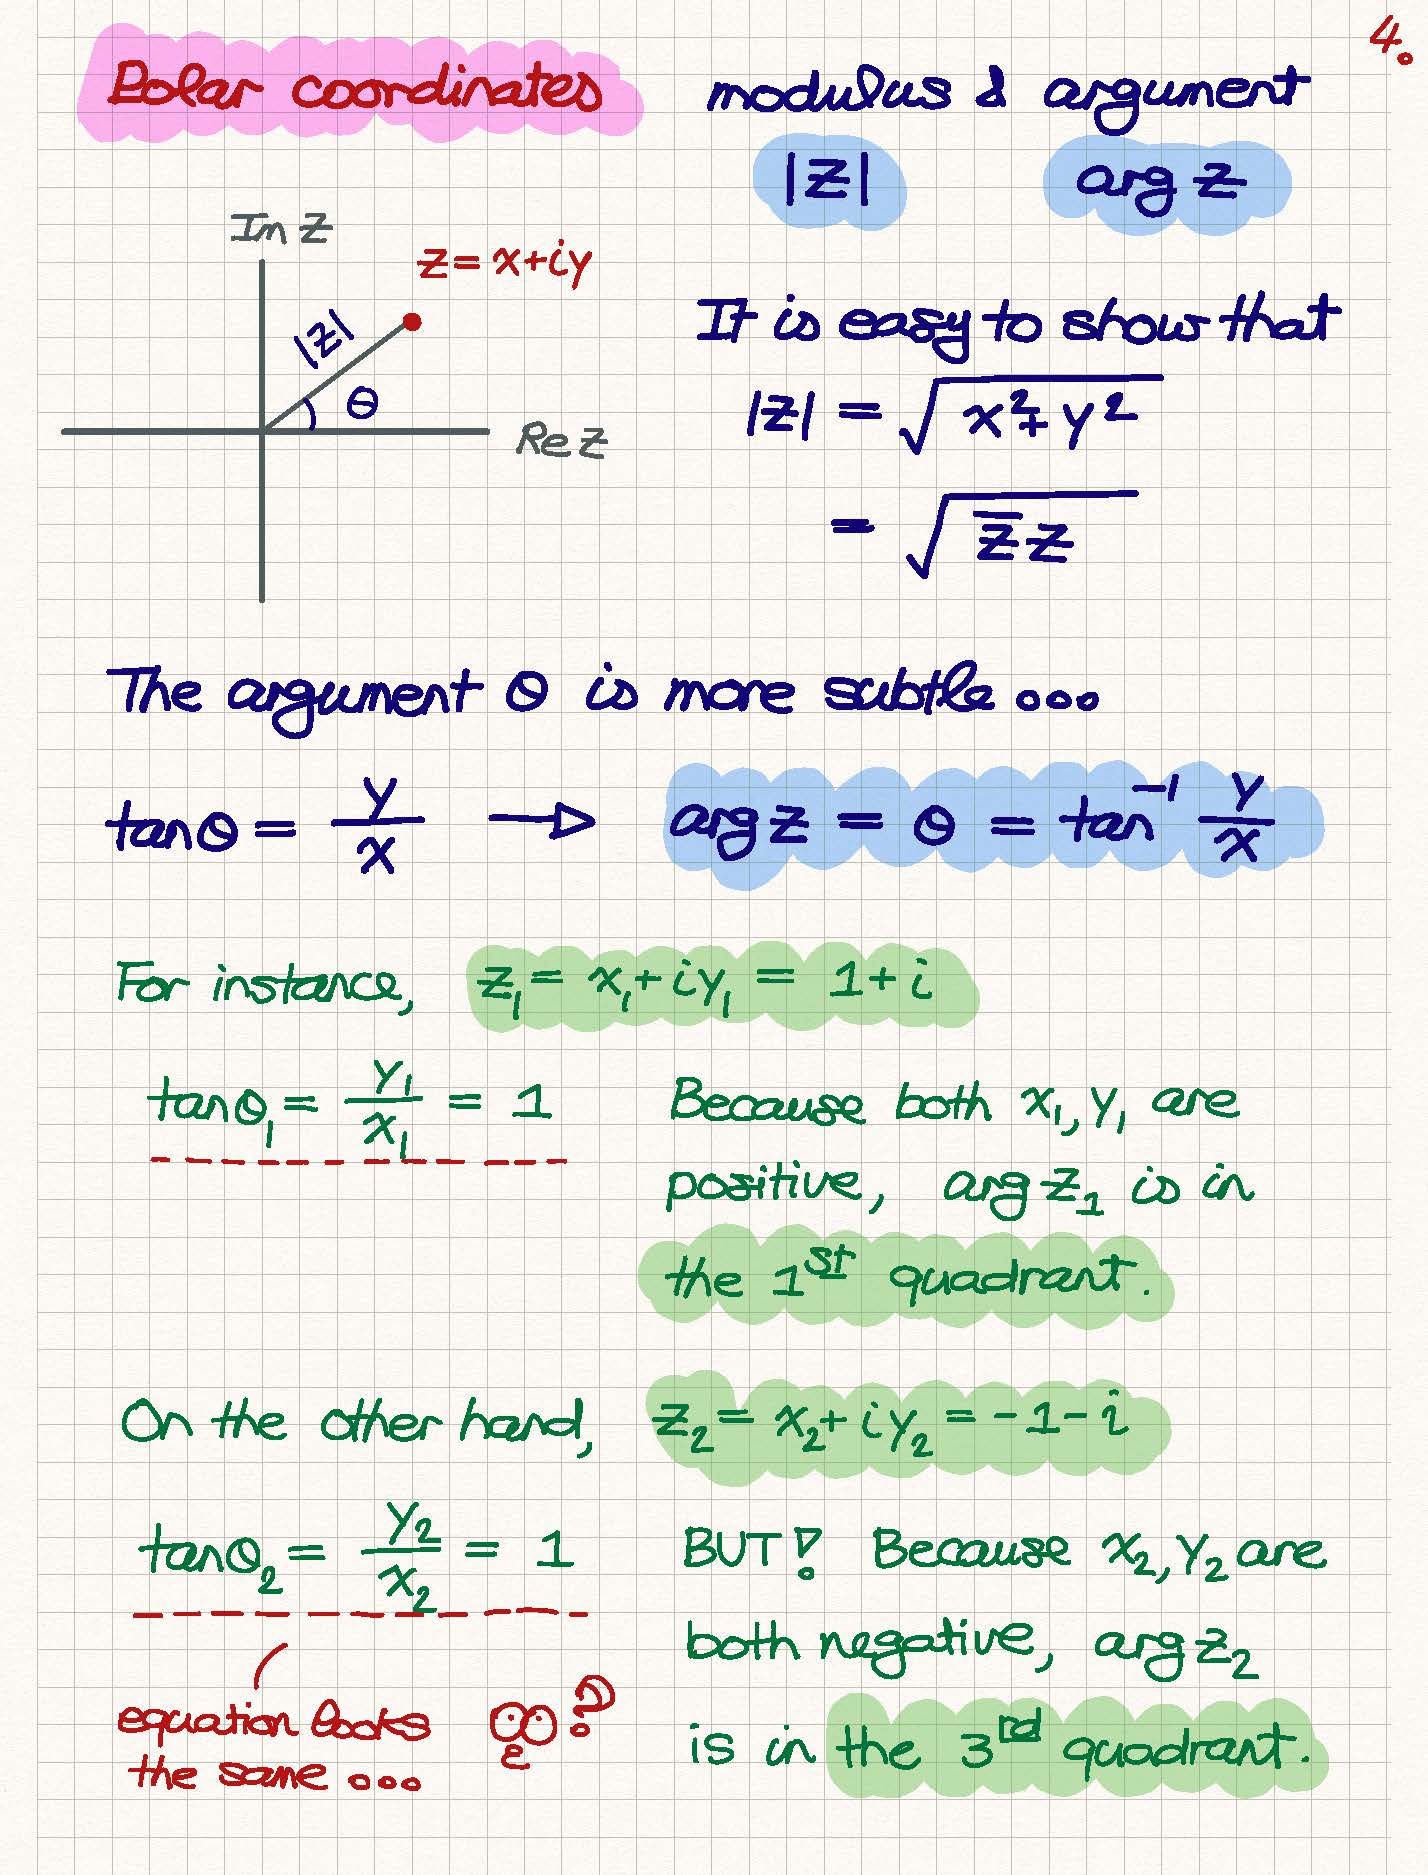 4.
Polar coordinates
modulus & argument
|z| arg z
Im z
z = x+iy
|z|
θ
Re z
It is easy to show that
|z| = √(x²+y²)
= √(z̅z)
The argument θ is more subtle...
tanθ = y/x → arg z = θ = tan⁻¹ y/x
For instance, z₁ = x₁+iy₁ = 1+i
tanθ₁ = y₁/x₁ = 1
Because both x₁,y₁ are
positive, arg z₁ is in
the 1st quadrant.
On the other hand, z₂ = x₂+iy₂ = -1-i
tanθ₂ = y₂/x₂ = 1
BUT! Because x₂,y₂ are
both negative, arg z₂
is in the 3rd quadrant.
equation looks
the same...
?